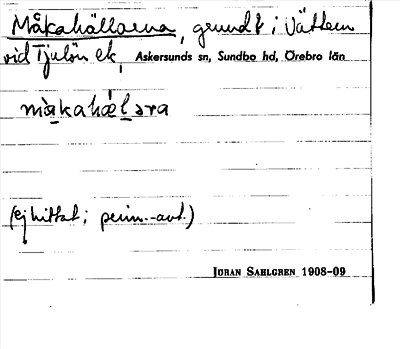 Måkahällarna, grund t i Vättern
vid Tjulön ek, Askersunds sn, Sundbo hd, Örebro län
måkahälɔra
(ej hittat i prim.-aut.)
JÖRAN SAHLGREN 1908-09